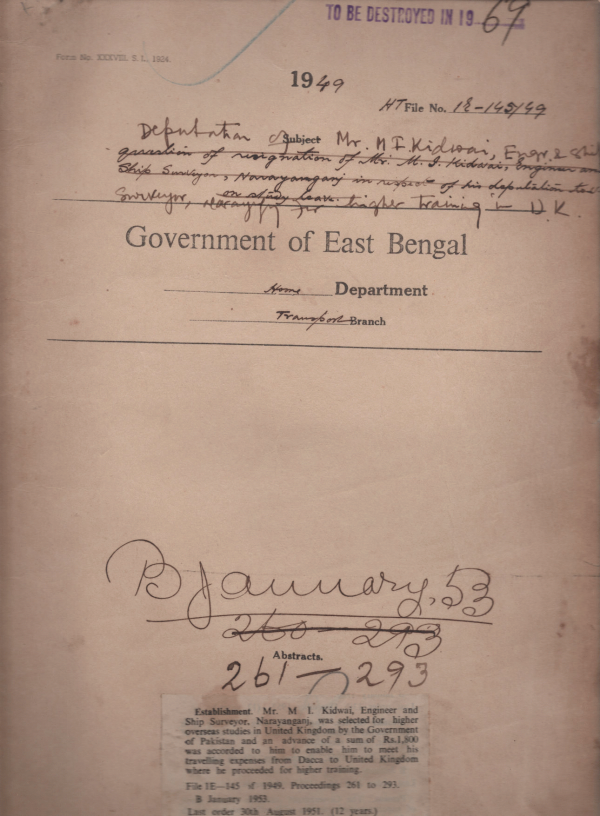 TO BE DESTROYED IN 1969
Form No. XXXVIII, S. I., 1924.
1949
HT File No. 1E-145/49
Deputation of Subject Mr. M I Kidwai, Engr. & Ship
question of resignation of Mr. M. I. Kidwai, Engineer and
Ship Surveyor, Narayanganj in respect of his deputation
on study leave.
Surveyor, Narayanganj for higher training in U.K.
Government of East Bengal
Home Department
Transport Branch
B January, 53
260 - 293
Abstracts.
261 - 293
Establishment. Mr. M I. Kidwai, Engineer and
Ship Surveyor, Narayanganj, was selected for higher
overseas studies in United Kingdom by the Government
of Pakistan and an advance of a sum of Rs.1,800
was accorded to him to enable him to meet his
travelling expenses from Dacca to United Kingdom
where he proceeded for higher training.
File 1E—145 of 1949. Proceedings 261 to 293.
B January 1953.
Last order 30th August 1951. (12 years.)